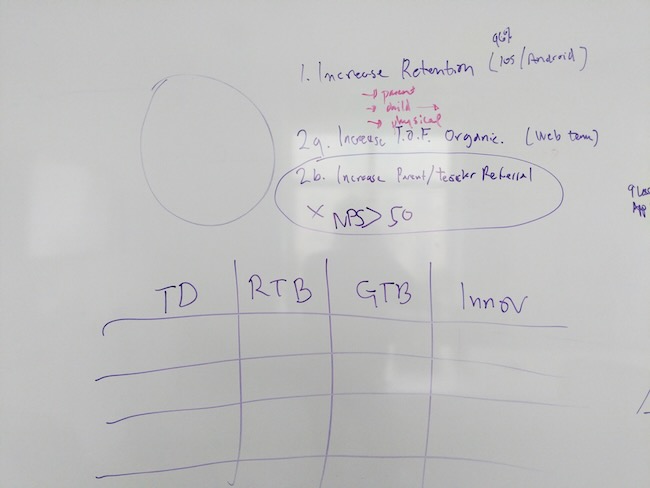 96%
1. Increase Retention (ios/Android)
→ parent
→ child →
→ physical
2a. Increase T.O.F. Organic. (Web team)
2b. Increase Parent/teacher Referral
× NPS > 50
TD RTB GTB Innov
App